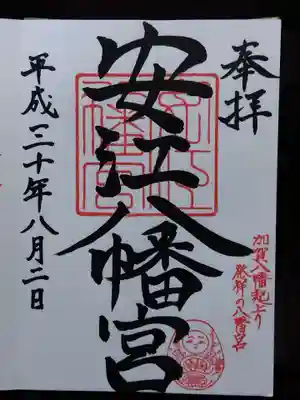 奉拝
安江八幡宮
平成三十年八月二日
加賀八幡起上り
発祥の八幡宮